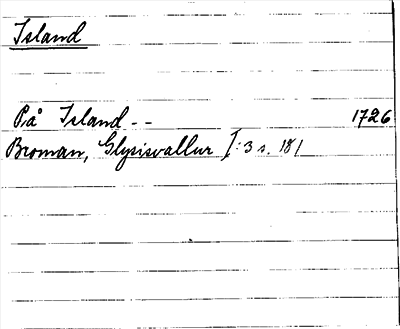 Island
På Island -- 1726
Broman, Glysisvallur I:3 s. 181